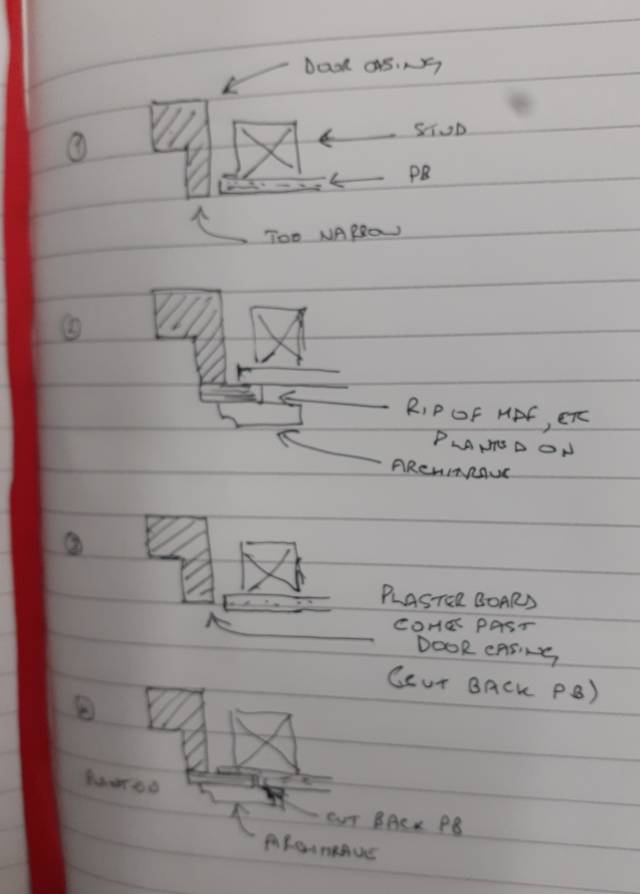 ①
DOOR CASING
STUD
PB
TOO NARROW
②
RIP OF MDF, ETC
PLANTED ON
ARCHITRAVE
③
PLASTERBOARD
COMES PAST
DOOR CASING
(CUT BACK PB)
④
PLANTED
CUT BACK PB
ARCHITRAVE